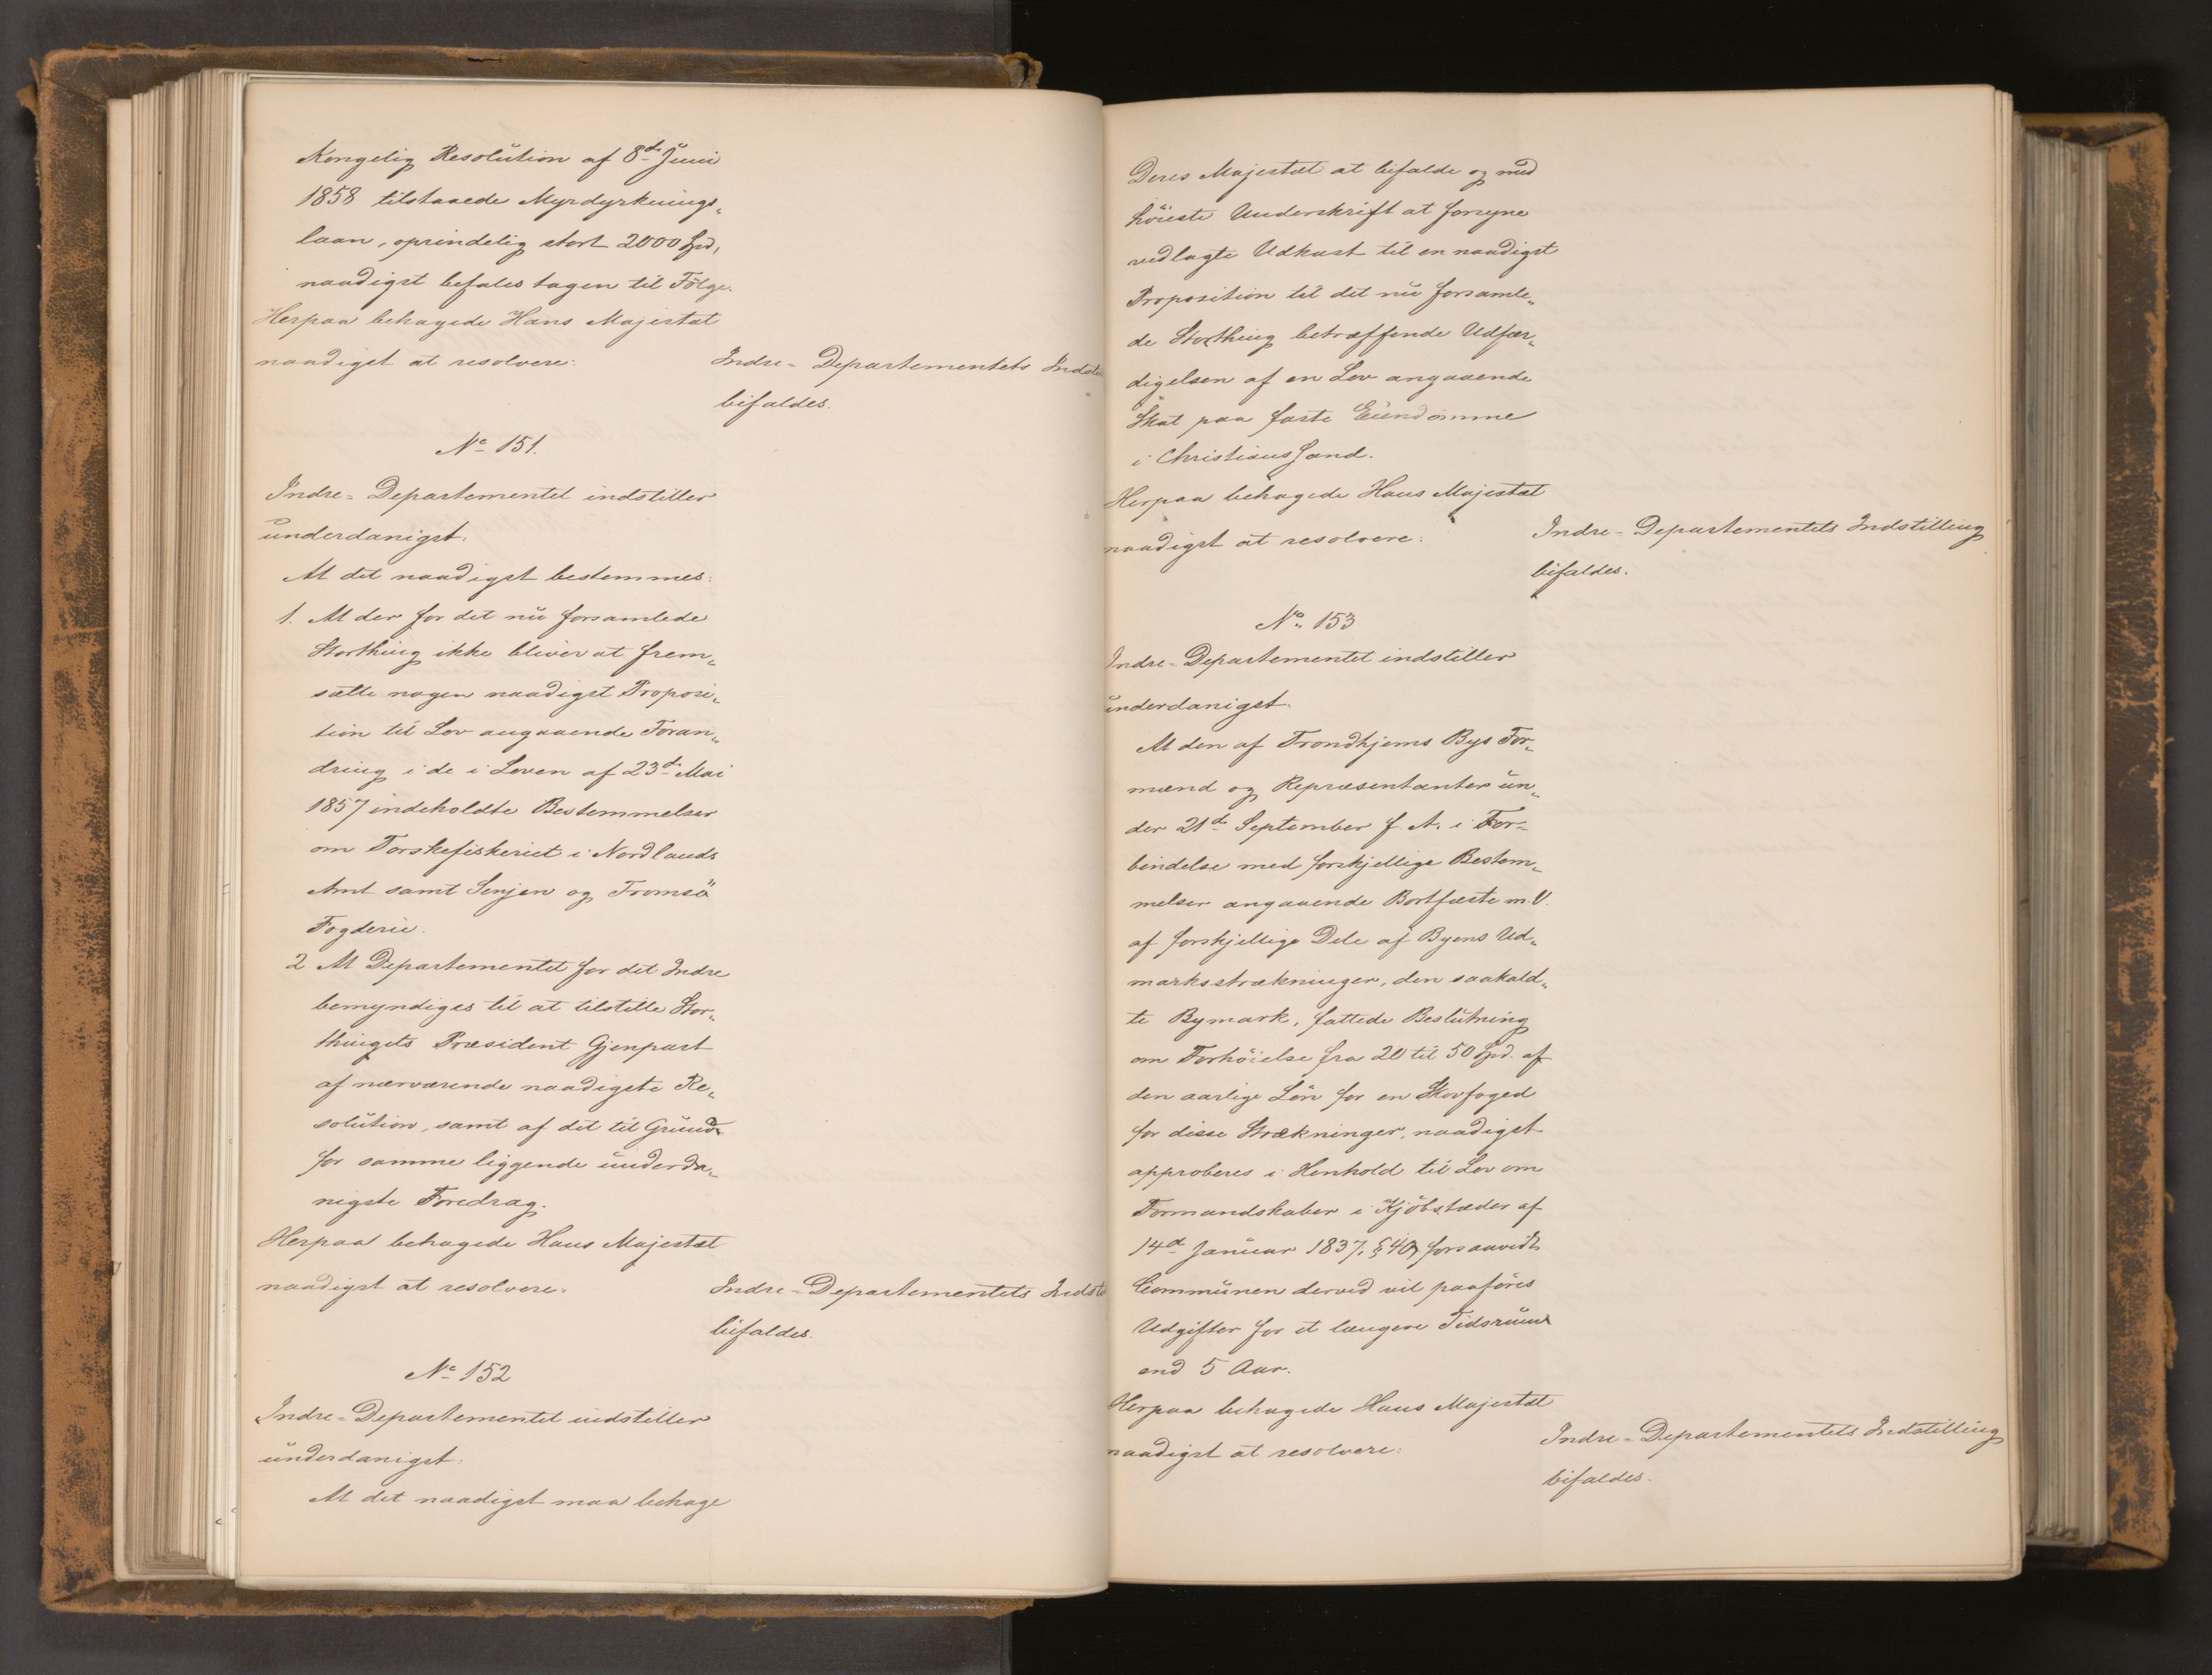 Kongelig Resolution af 8de Juni
1858 tilstaaede Myrdyrknings„
laan, oprindelig stort 2000 Spd,
naadigst befales tagen til Følge.
Herpaa behagede Hans Majestæt
naadigst at resolvere:
Indre-Departementets Indsti
bifaldes.
No 151.
Indre-Departementet indstiller
underdanigst.
At det naadigst bestemmes:
1. At der for det nu forsamlede
Storthing ikke bliver at frem„
sætte nogen naadigst Proposi„
tion til Lov angaaende Foran„
dring i de i Loven af 23de Mai
1857 indeholdte Bestemmelser
om Torskefiskeriet i Nordlands
Amt samt Senjen og Tromsö
Fogderie.
2. At Departementet for det Indre
bemyndiges til at tilstille Stor„
thingets Præsident Gjenpart
af nærværende naadigste Re„
solution, samt af det til Grund
for samme liggende underda„
nigste Foredrag.
Herpaa behagede Hans Majestæt
naadigst at resolvere:
Indre-Departementets Indst
bifaldes.
No 152
Indre-Departementet indstiller
underdanigst:
At det naadigst maa behage
Deres Majestæt at bifalde og med
höieste Underskrift at forsyne
vedlagte Udkast til en naadigst
Proposition til det nu forsamle„
de Storthing betræffende Udfær„
digelsen af en Lov angaaende
Skat paa faste Eiendomme
i Christianssand.
Herpaa behagede Hans Majestæt
naadigst at resolvere:
Indre-Departementets Indstilling
bifaldes.
No. 153
Indre-Departementet indstiller
underdanigst.
At den af Trondhjems Bys For„
mænd og Repræsentanter un„
der 21de September f. A. i For-
bindelse med forskjellige Bestem„
melser angaaende Bortfæste m.V.
af forskjellige Dele af Byens Ud„
marksstrækninger, den saakald„
te Bymark, fattede Beslutning
om Forhöielse fra 20 til 50 Spd. af
den aarlige Lön for en Skovfoged
for disse Strækninger, naadigst
approberes i Henhold til Lov om
Formandskaber i Kjöbstæder af
14de Januar 1837, § 40, forsaavidt
Communen derved vil paaföres
Udgifter for et længere Tidsrum
end 5 Aar.
Herpaa behagede Hans Majestæt
naadigst at resolvere:
Indre-Departementets Indstilling
bifaldes.